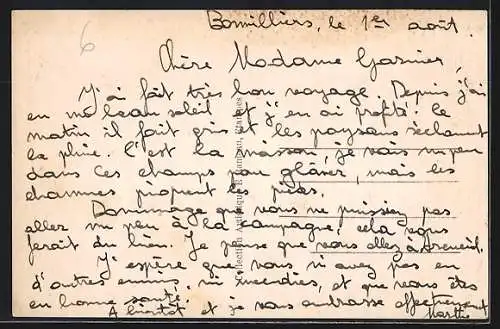 6
Bonvilliers, le 1er août.
Chère Madame Garnier,
J'ai fait très bon voyage. Depuis j'ai
eu un beau soleil et j'en ai profité. Ce
matin il fait gris et les paysans réclament
la pluie. C'est la moisson, je vais un peu
dans les champs pour glâner, mais les
chaumes piquent les pieds.
Dommage que vous ne puissiez pas
aller un peu à la campagne, cela vous
ferait du bien. Je pense que vous allez à
J'espère que vous n'avez pas eu
d'autres ennuis, ni incendies, et que vous êtes
en bonne santé.
A bientôt et je vous embrasse affectueusement
Marthe